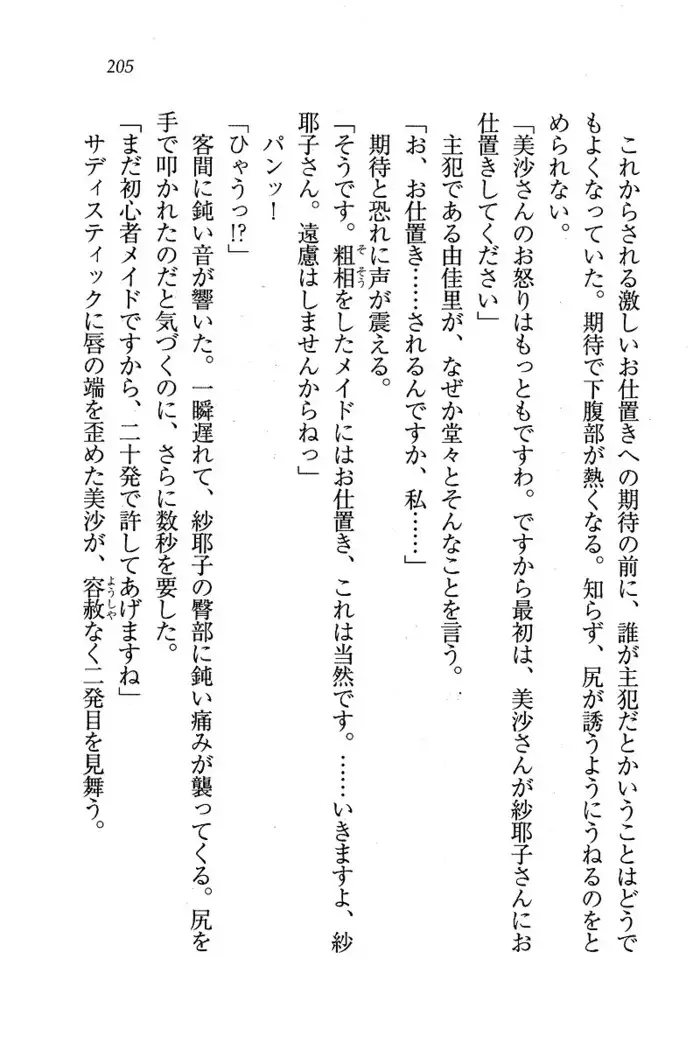 205
これからされる激しいお仕置きへの期待の前に、誰が主犯だとかいうことはどうで
もよくなっていた。期待で下腹部が熱くなる。知らず、尻が誘うようにうねるのをと
められない。
「美沙さんのお怒りはもっともですわ。ですから最初は、美沙さんが紗耶子さんにお
仕置きしてください」
主犯である由佳里が、なぜか堂々とそんなことを言う。
「お、お仕置き……されるんですか、私……」
期待と恐れに声が震える。
「そうです。粗相をしたメイドにはお仕置き、これは当然です。……いきますよ、紗
耶子さん。遠慮はしませんからねっ」
パンッ！
「ひゃうっ!?」
客間に鈍い音が響いた。一瞬遅れて、紗耶子の臀部に鈍い痛みが襲ってくる。尻を
手で叩かれたのだと気づくのに、さらに数秒を要した。
「まだ初心者メイドですから、二十発で許してあげますね」
サディスティックに唇の端を歪めた美沙が、容赦なく二発目を見舞う。
そそう
ようしゃ